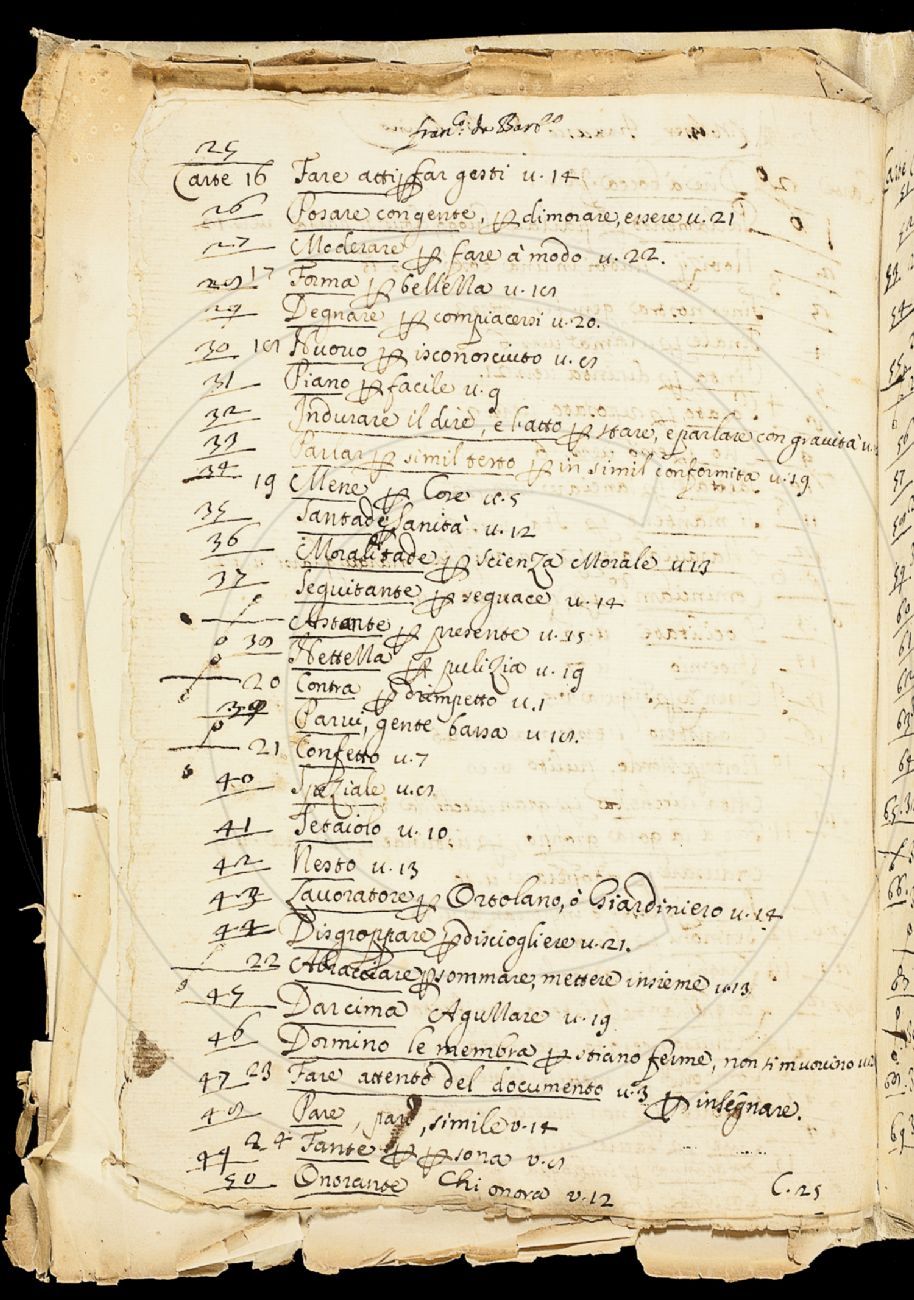 Fran.º da Barb.º
25
Carte 16 Fare atti ꝑ far gesti u. 14
26 Posare con gente, ꝑ dimorare, essere u. 21
27 Moderare ꝑ fare à modo u. 22.
28 17 Forma ꝑ bellezza u. 18
29 Degnare ꝑ compiacersi u. 20.
30 18 Nuovo ꝑ isconosciuto u. 8
31 Piano ꝑ facile u. 9
32 Indurare il dire, e l'atto ꝑ stare, e parlare con gravità u.
33 Parlar ꝑ simil testo ꝑ in simil conformita u. 19.
34 19 Mene ꝑ Cose u. 5
35 Santade Sanità u. 12
36 Moralitade ꝑ scienza Morale u 13
37 Seguitante ꝑ seguace u. 14
Astante ꝑ presente u. 15
38 Nettezza ꝑ pulizia u. 19
20 Contra ꝑ dirimpetto u. 1
39 Parvi, gente bassa u 18.
21 Confetto u. 7
40 Speziale u. 8
41 Setaiolo u. 10
42 Nesto u. 13
43 Lavoratore ꝑ Ortolano, ò Giardiniero u. 14
44 Disgroppare ꝑ disciogliere u. 21.
22 Abracciare ꝑ sommare, mettere insieme u. 13
45 Darcima Aguzzare u. 19
46 Dormino le membra ꝑ stiano ferme, non si muovino
47 23 Fare attento del documento u. 3 ꝑ insegnare.
48 Pare, pari, simile v. 14
49 24 Fante ꝑ ꝑsona v. 8
50 Onorante Chi onora v. 12
C. 25